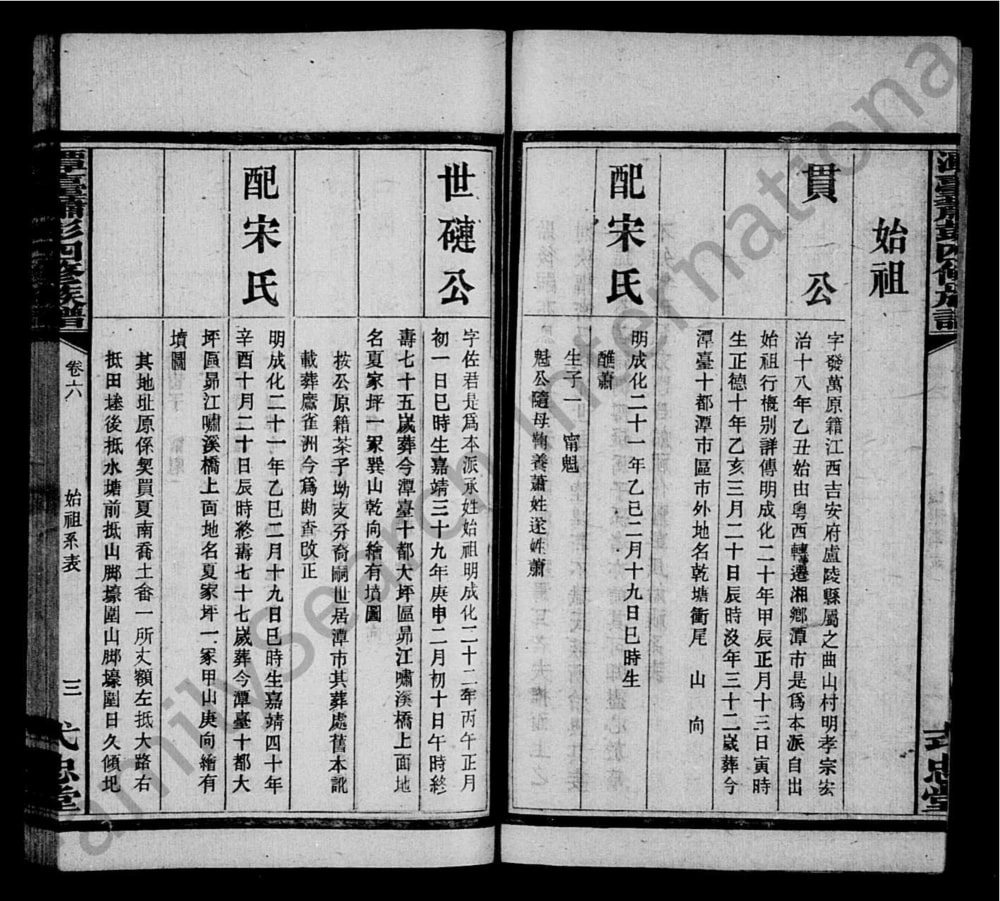 始祖
貫公
字發萬原籍江西吉安府盧陵縣屬之曲山村明孝宗宏
治十八年乙丑始由粤西轉遷湘鄉潭市是爲本派自出
始祖行槪別詳傳明成化二十年甲辰正月十三日寅時
生正德十年乙亥三月二十日辰時沒年三十二嵗葬今
潭臺十都潭市區市外地名乾塘衝尾 山 向
配宋氏
明成化二十一年乙巳二月十九日巳時生
醮蕭
生子一 甯魁
魁公隨母鞠養蕭姓遂姓蕭
世璉公
字佐君是爲本派承姓始祖明成化二十二年丙午正月
初一日巳時生嘉靖三十九年庚申二月初十日午時終
壽七十五嵗葬今潭臺十都大坪區昴江嘯溪橋上面地
名夏家坪一冢巽山乾向繪有墳圖
按公原籍茶子坳支分裔嗣世居潭市其葬處舊本訛
載葬鷹雀洲今爲勘查改正
配宋氏
明成化二十一年乙巳二月十九日巳時生嘉靖四十年
辛酉十月二十日辰時終壽七十七嵗葬今潭臺十都大
坪區昴江嘯溪橋上面地名夏家坪一冢甲山庚向繪有
墳圖
其地址原係契買夏南喬土畬一所丈額左抵大路右
抵田墶後抵水塘前抵山脚壕圍山脚壕圍日久傾圯
潭臺蕭彭四修族譜
卷六
始祖系表
三
式忠堂
FamilySearch International